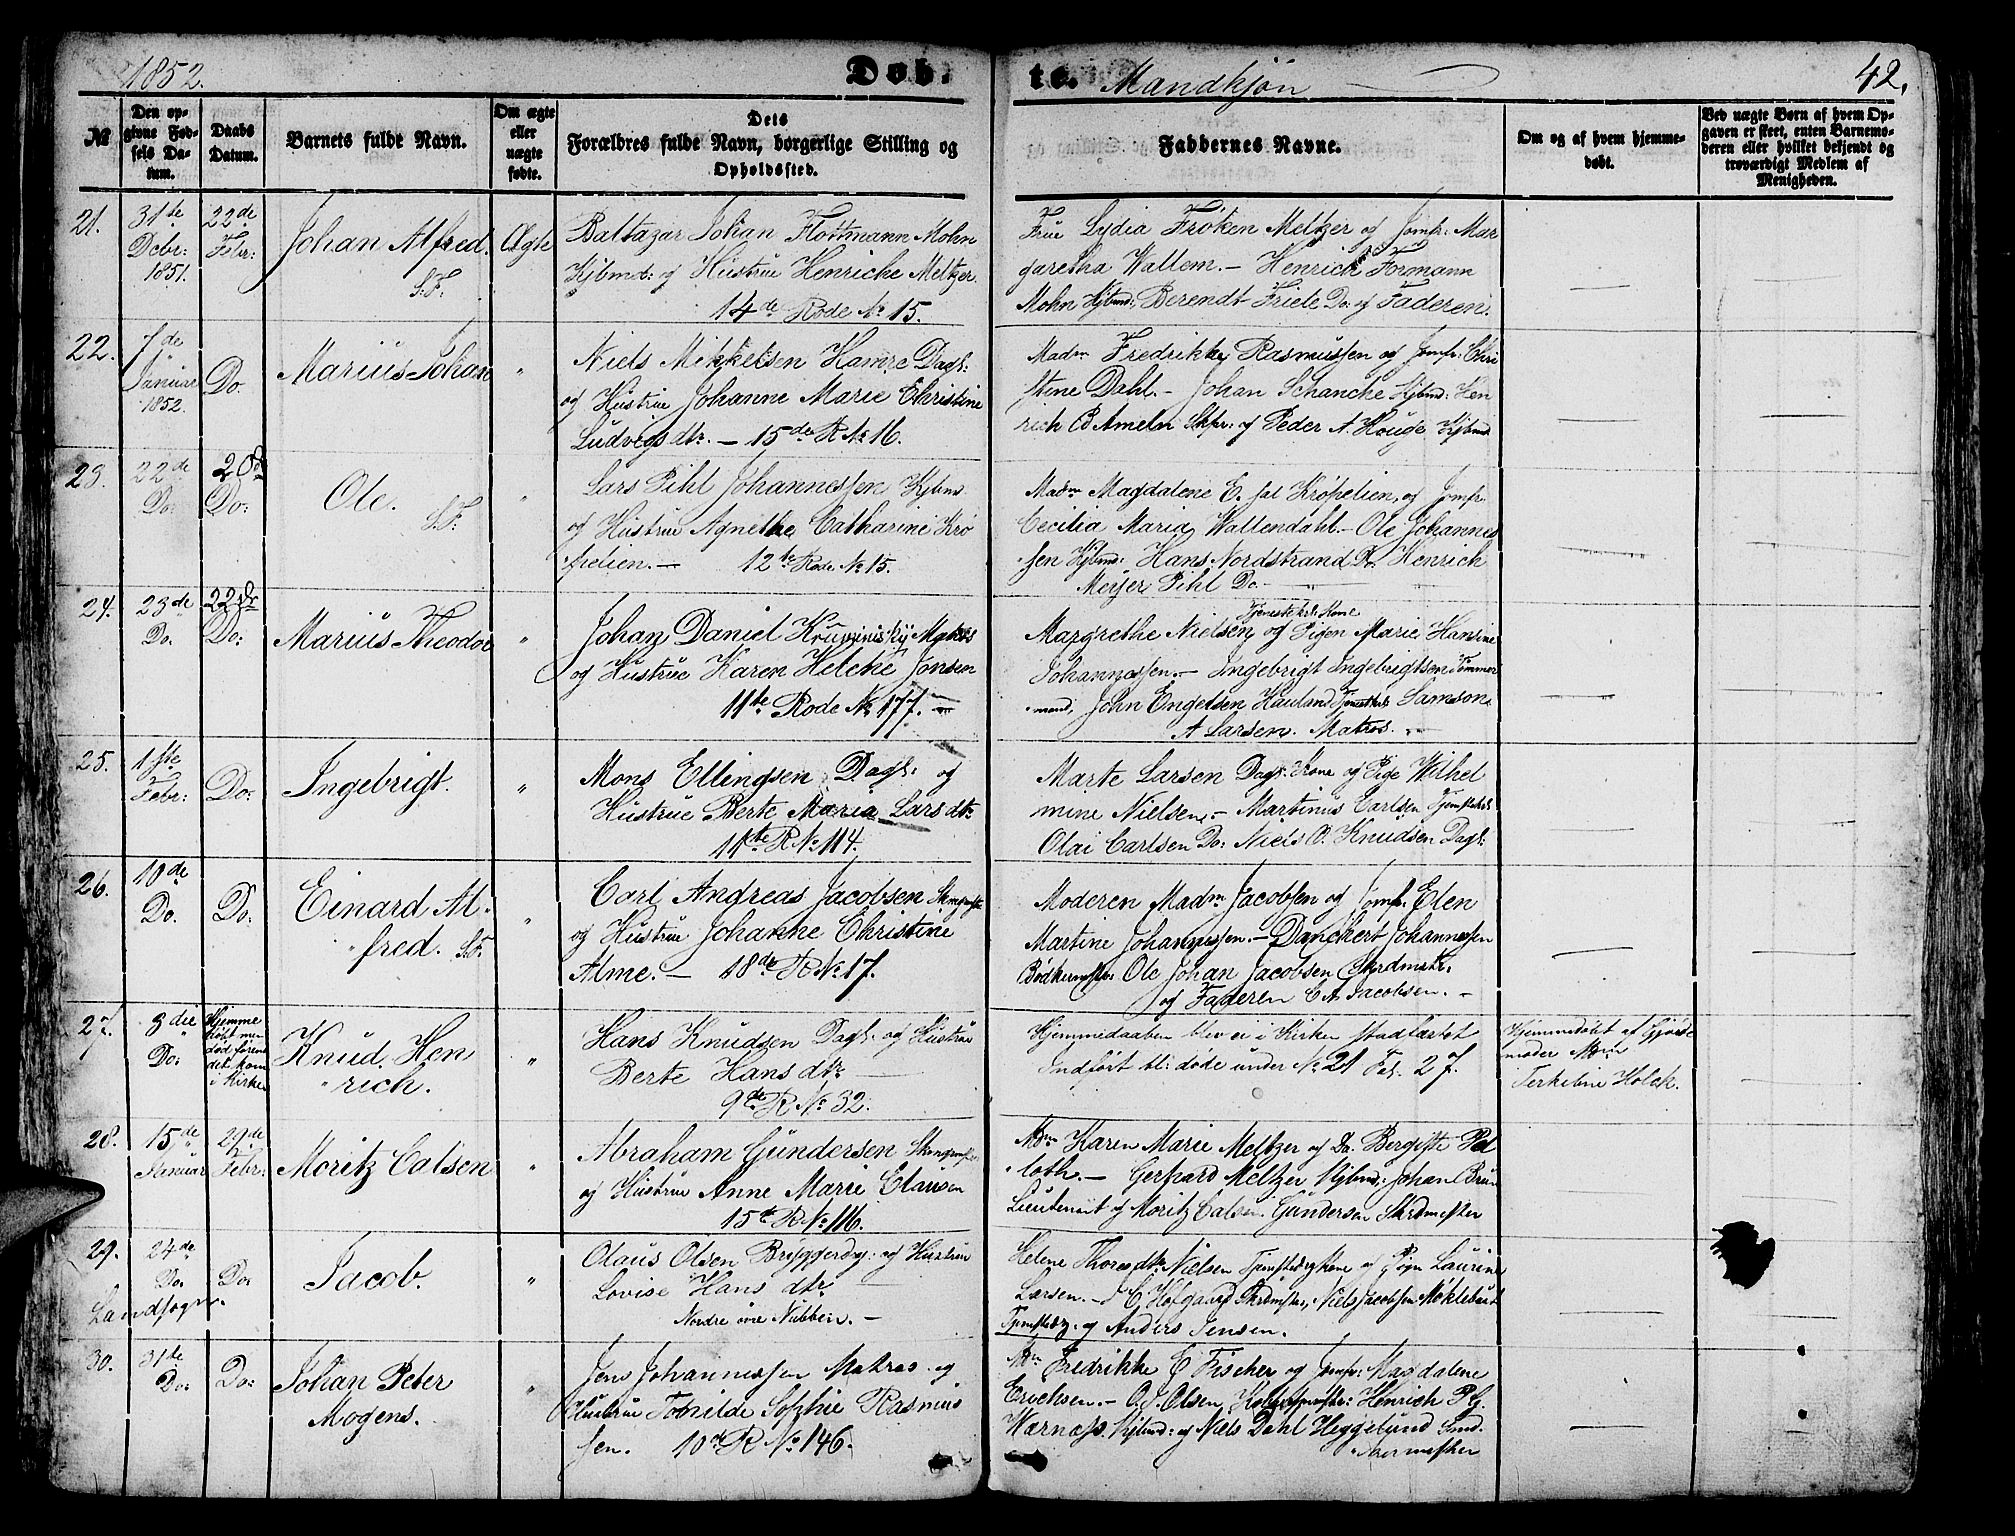 1852.
Døb=
te.
Mandkjøn
42.
№
Den op-
givne Fød-
sels Da-
tum.
Daabs
Datum.
Barnets fulde Navn.
Om ægte
eller
uægte
fødte.
Dets
Forældres fulde Navn, borgerlige Stilling og
Opholdssted.
Faddernes Navne.
Om og af hvem hjemme-
døbt.
Ved uægte Børn af hvem Op-
gaven er skeet, enten Barnemo-
deren eller hvilket bekjendt og
troværdigt Medlem af
Menigheden.
21.
31te
Debr:
1851.
22de
Febr:
Johan Alfred.
S.F.
Ægte
Baltazar Johan Flottmann Mohn
Kjbmd: og Hustrue Henricke Meltzer
14de Rode № 15.
Frue Lydia Frøken Meltzer og Jomfr: Mar
garetha Wallem. — Henrich Formann
Mohn Kjbmd: Berendt Friele Do: og Faderen.
22.
7de
Januar
1852.
Do.
Marius Johan
"
Niels Mikkelsen Hamre Dagl:
og Hustrue Johanne Marie Christine
Ludvigsdtr. — 15de R № 16.
Madm Fredrikke Rasmussen og Jomfr: Chri
stine Dahl. — Johan Schancke Kjbmd: Hen
rich B Ameln Skpr: og Peder A. Houge Kjbmd
23.
22de
Do:
20de
Do:
Ole.
S.F.
"
Lars Pihl Johannessen Kjbmd
og Hustrue Agnethe Catharine Krø
pelien. — 12te Rode № 15.
Madm Magdalene E. sal Krøpelien, og Jomfr.
Cecilia Maria Wallendahl. — Ole Johannes
sen Kjbmd: Hans Nordstrand Do Henrich
Meyer Pihl Do —
24.
23de
Do:
22de
Do:
Marius Theodor
"
Johan Daniel Matros
og Hustrue Karen Helche Jonsen
11te Rode № 177. —
Tjenestekrls Kone
Margrethe Nielsen og Pigen Marie Hansine
Johannessen. — Ingebrigt Ingebrigtsen Tømmer
mand, John Engelsen Hauland Samson
A Larsen. Matros. —
25.
1ste
Febr:
Do:
Ingebrigt.
"
Mons Ellingsen Dagl: og
Hustrue Berte Maria Larsdtr
11te R № 114.
Marte Larsen Dagl: Kone og Pige Wilhel
mine Nielsen. — Martinus Carlsen
Olai Carlsen Do: Niels O. Knudsen Dagl:
26.
10de
Do.
Do:
Einard Al=
fred. S.F.
"
Carl Andreas Jacobsen
og Hustrue Johanne Christine
Alme. — 18de R № 17.
Moderen Madm Jacobsen og Jomfr. Elen
Martine Johannessen. — Danckert Johannessen
Bødkermstr: Ole Johan Jacobsen Skrdmstr:
og Faderen C A Jacobsen. —
27.
3die
Do:
Hjemme
døbt men
død føren
det kom
i Kirke
Knud Hen
rich.
"
Hans Knudsen Dagl: og Hustrue
Berte Hansdtr —
9de R № 32.
Hjemmedaaben blev ei i Kirken stadfæstet
Indført bl: døde under № 21 Fol. 27.
Hjemmedøbt af Gjorde
moder Mdm
Terkeline Holck.
28.
15de
Januar
29de
Febr:
Moritz Calsen
"
Abraham Gundersen
og Hustrue Anne Marie Clausen
15de R № 116.
Mdm Karen Marie Meltzer og Do. Bergitte Pal
loth. — Gerhard Meltzer Kjbmd: Johan Brun
Lieutenant og Moritz Calsen Gundersen Skrdmester
29.
24de
Do
Landsogn.
Do:
Jacob.
"
Olaus Olsen og Hustrue
Lovise Hansdtr
Nordre øvre Nubben. —
Helene Thoresdtr Nielsen og Pigen Laurine
Larsen. — J C Hofgaard Skrdmstr, Niels Jacobsen Møklebust
og Anders Jensen.
30.
31te
Do:
Do:
Johan Peter
Mogens.
"
Jens Johannessen Matros og
Hustrue Tomilde Sophie Rasmus
sen. 10de R № 146.
Mdm Fredrikke C Fischer og Jomfr: Magdalene
Erichsen. — O. J. Olsen, Henrich P. J.
Warnass Kjbmd: og Niels Dahl Heggelund Snd
kermester